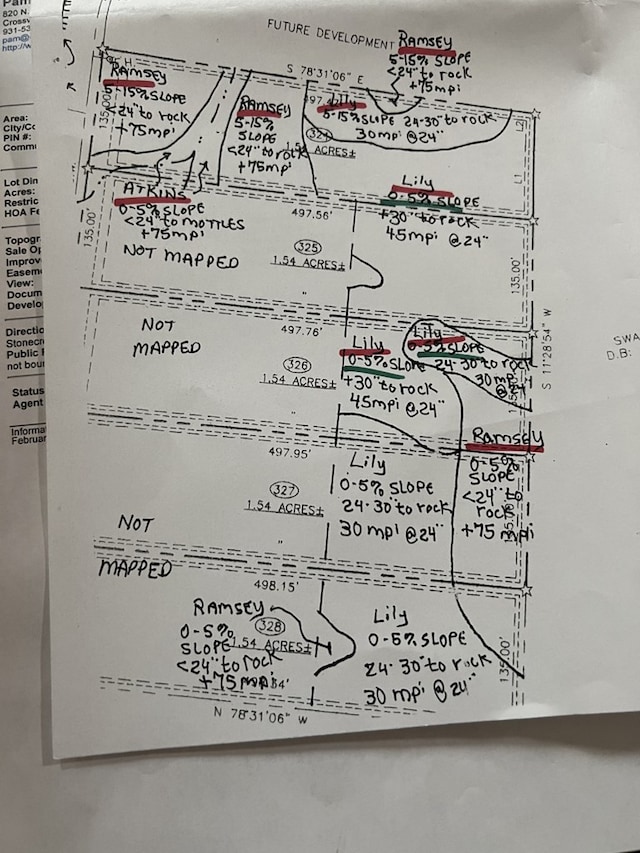 Pam
820 N.
Crossv
931-53
pam@
http://w
Area:
City/Co
PIN #:
Commu
Lot Dim
Acres:
Restric
HOA Fe
Topogr
Sale Op
Improv
Easem
View:
Docum
Develop
Directio
Stonecr
Public R
not bour
Status
Agent
Informa
Februar
FUTURE DEVELOPMENT
RAMSEY
5-15% SLOPE
<24" to rock
+75mpi
S 78°31'06" E
RAMSEY
5-15% SLOPE
<24" to rock
+75mpi
135.00'
RAMSEY
5-15%
SLOPE
<24" to rock
+75mpi
Lily
5-15% SLOPE 24-30 to rock
30mpi @24"
324
ACRES±
L2
L1
ATKINS
0-5% SLOPE
<24" to MOTTLES
+75mpi
135.00'
Lily
0-5% SLOPE
+30" to rock
45mpi @24"
497.56'
NOT MAPPED
325
1.54 ACRES±
135.00'
"
497.76'
NOT
MAPPED
Lily
0-5% SLOPE
+30" to rock
45mpi @24"
Lily
0-5% SLOPE
24-30 to rock
30mpi
@24"
326
1.54 ACRES±
S 11°28'54" W
SWA
D.B:
"
497.95'
RAMSEY
0-5%
SLOPE
<24" to
rock
+75mpi
Lily
0-5% SLOPE
24-30" to rock
30 mpi @24"
327
1.54 ACRES±
NOT
MAPPED
"
498.15'
RAMSEY
0-5%
SLOPE
<24" to rock
+75mpi
328
1.54 ACRES±
Lily
0-5% SLOPE
24-30" to rock
30 mpi @24"
135.00'
N 78°31'06" W